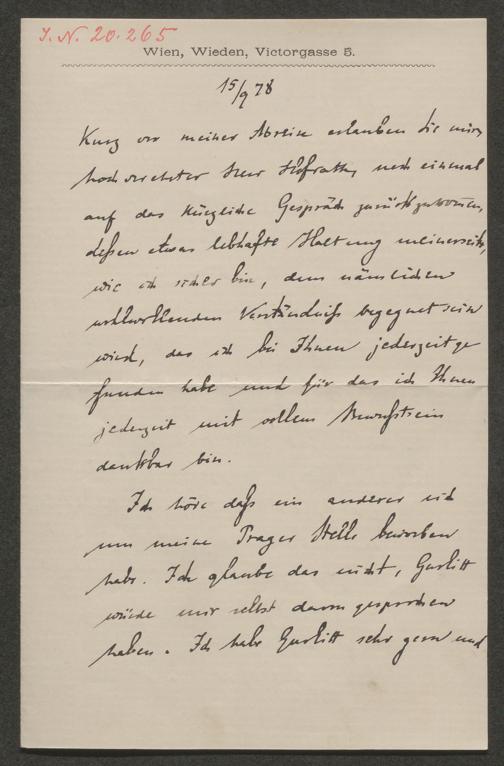 J. N. 20.265
Wien, Wieden, Victorgasse 5.
15/9 78
Kurz vor meiner Abreise erlauben Sie mir,
hochverehrter Herr Hofrath, noch einmal
auf das kürzliche Gespräch zurückzukommen,
deßen etwas lebhafte Haltung meinerseits,
wie ich sicher bin, dem nämlichen
wohlwollenden Verständniß begegnet sein
wird, das ich bei Ihnen jederzeit ge
funden habe und für das ich Ihnen
jederzeit mit vollem Bewußtsein
dankbar bin.
Ich höre daß ein anderer sich
um meine Prager Stelle beworben
habe. Ich glaube das nicht, Gurlitt
würde mir selbst davon gesprochen
haben. Ich habe Gurlitt sehr gern und